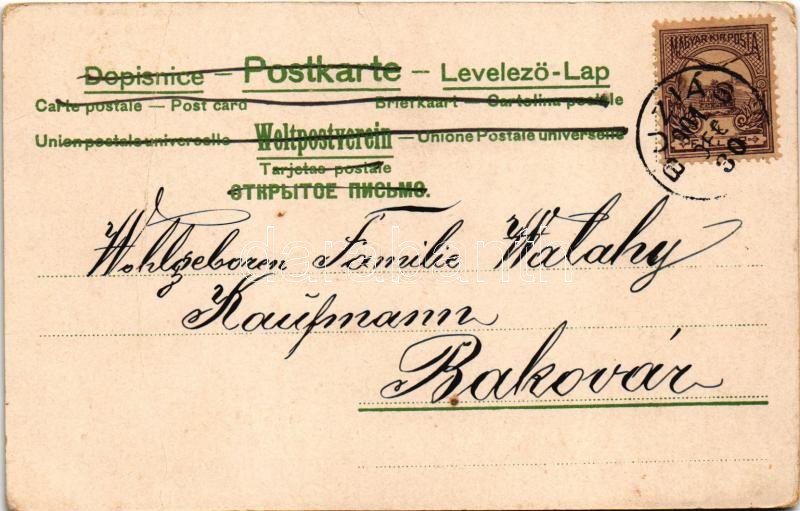 Dopisnice – Postkarte – Levelező-Lap
Carte postale — Post card Briefkaart — Cartolina postale
Union postale universelle — Weltpostverein — Unione Postale universelle
Tarjetas postale
ОТКРЫТОЕ ПИСЬМО.
MAGYAR KIR. POSTA
BUZIÁS
Wohlgeboren Familie Watahy
Kaufmann
Bakovár
darabanth